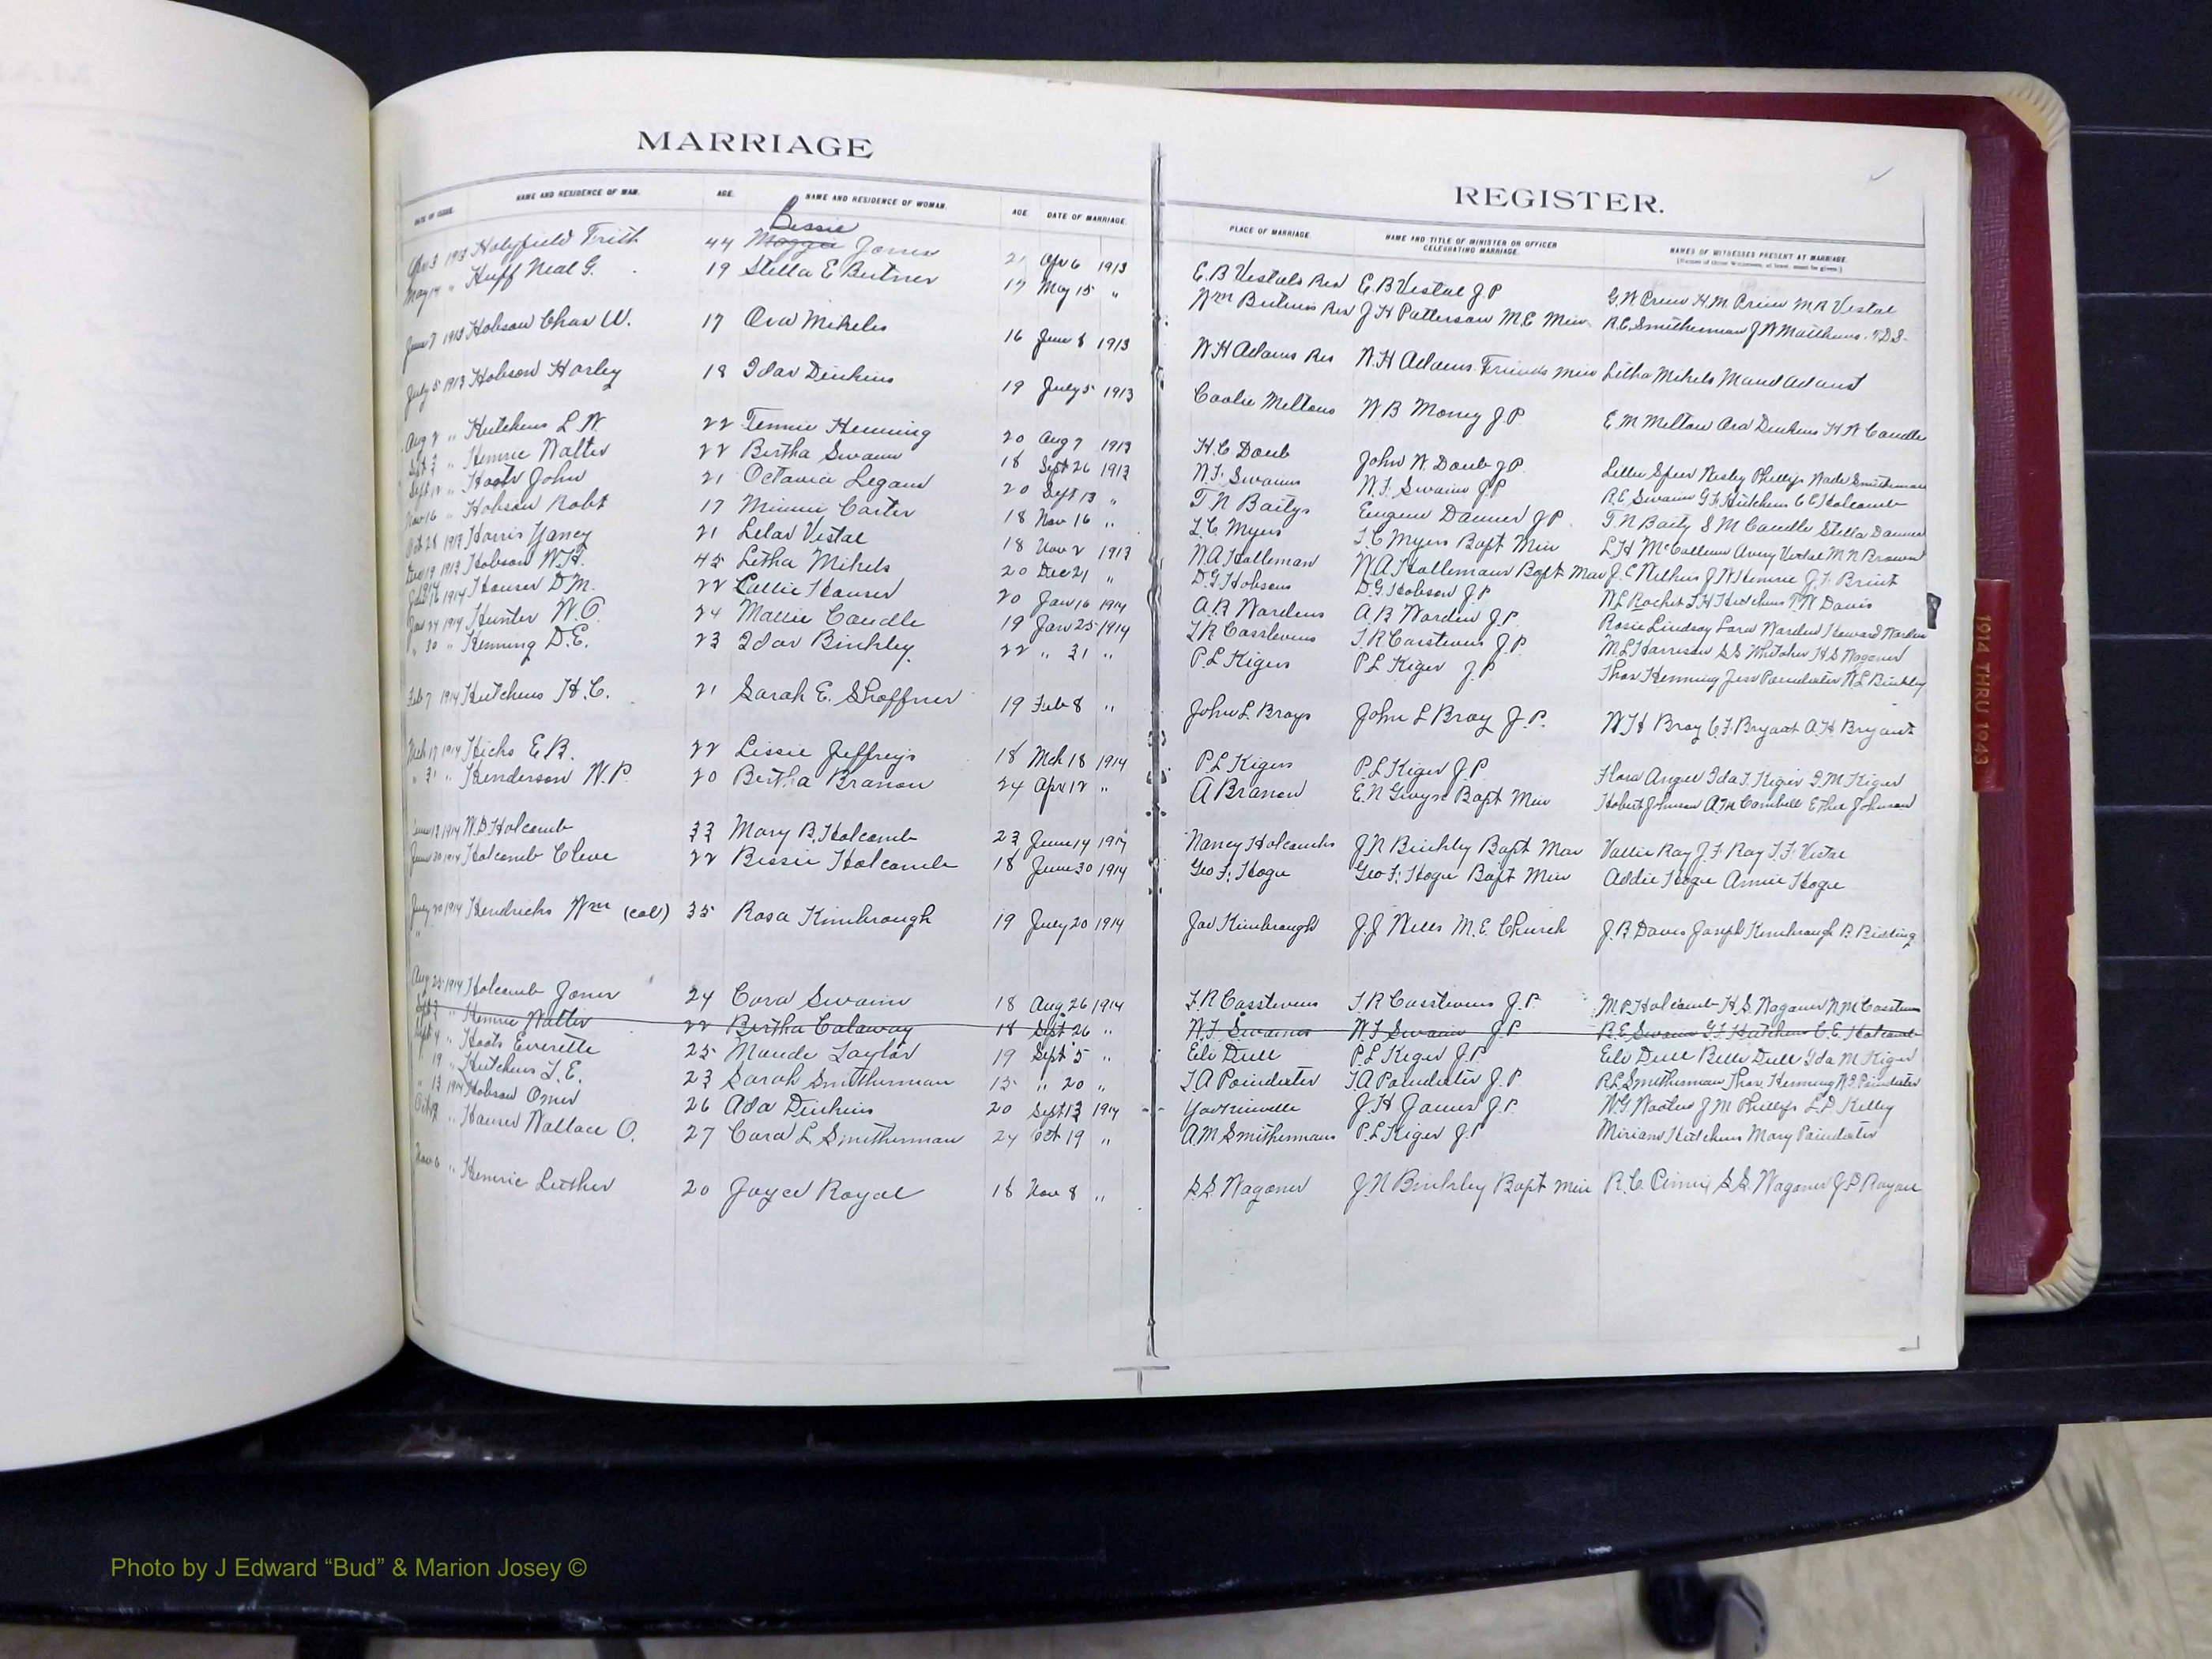 MARRIAGE
REGISTER.
DATE OF ISSUE. NAME AND RESIDENCE OF MAN. AGE. NAME AND RESIDENCE OF WOMAN. AGE DATE OF MARRIAGE. PLACE OF MARRIAGE. NAME AND TITLE OF MINISTER OR OFFICER CELEBRATING MARRIAGE. NAMES OF WITNESSES PRESENT AT MARRIAGE.
(Names of three Witnesses, at least, must be given.)
Bessie
Apr 3 1913 Holyfield Frith 44 Maggie Jones 21 Apr 6 1913 E. B Vestals Res E. B Vestal J P G W Prim H. M. Prim M. R Vestal
May 14 " Huff Neal G. 19 Stella E Butner 17 May 15 " Wm Butners Res J H Patterson M. E Min R. E. Smitherman J W Matthews
June 7 1913 Hobson Chas W. 17 Ova Mikeles 16 June 8 1913 W H Adams Res W. H Adams Friends Min Litha Mikels Maud Adams
July 5 1913 Hobson Harley 18 Ida Dinkins 19 July 5 1913 Coolie Meltons W B Money J P E M Melton Ora Dinkins H W Caudle
Aug 2 " Hutchens L W 22 Tennie Henning 20 Aug 7 1913 H. C Daub John W. Daub J P. Lillie Speer Wesley Phillips Wade Smitherman
Sept 3 " Hemric Walter 22 Bertha Swaim 18 Sept 26 1913 W. F. Swaims W. F. Swaim J P R E Swaim G. F. Hutchens C E Holcomb
Sept 12 " Hoots John 21 Octavia Legans 20 Sept 13 " T N Baitys Eugene Danner J P. T. N Baity S M Caudle Stella Danner
Nov 16 " Hobson Robt 17 Minnie Carter 18 Nov 16 " L. C Myers L. C Myers Bapt Min L. H McCollum Avery Vestal M N Brown
Oct 28 1913 Harris Yancy 21 Lelar Vestal 18 Nov 2 1913 W. A Halleman W. A Hallemans Bapt Man J. C Wilkins J W Hemric J. F. Brint
Dec 19 1913 Hobson W. H. 45 Letha Mikels 20 Dec 21 " D. G. Hobsons D. G. Hobson J P W L Rachet I. H Hutchens T. W Davis
Jan 16 1914 Hauser D. M. 22 Callie Hauser 20 Jan 16 1914 A. B Wardens A. B Warden J. P. Rosie Lindsay Lara Warden Howard Warden
Jan 24 1914 Hunter W. O. 24 Mattie Caudle 19 Jan 25 1914 I. R Casstevens I. R Casstevens J. P M L Harrison S S Whitaker H. S Wagoner
" 30 " Henning D. E. 23 Idar Binkley 22 " 31 " P. L Kigers P L Kiger J. P Thos Henning Jess Poindexter W L Binkley
Feb 7 1914 Hutchens H. C. 21 Sarah E. Shaffner 19 Feb 8 " John L. Brays John L Bray J. P. W H Bray C. F. Bryant A. H Bryant
Mch 17 1914 Hicks E. B. 22 Lissie Jeffreys 18 Mch 18 1914 P L Kigers P L Kiger J P Flora Anger Ida T. Kiger I. M Kiger
" 31 " Henderson W. P. 20 Bertha Branon 24 Apr 12 " A Branon E. N Gwyn Bapt Min Hobert Johnson A. M Combell Ethel Johnson
June 13 1914 W. D Holcomb 33 Mary B. Holcomb 23 June 14 1914 Nancy Holcombs J N Binkley Bapt Man Vallie Ray J. F Ray T. F. Vestal
June 30 1914 Holcomb Cleve 22 Bessie Holcomb 18 June 30 1914 Geo F. Hogue Geo F. Hogue Bapt Min Addie Hogue Annie Hogue
July 20 1914 Hendricks Wm (col) 35 Rosa Kimbrough 19 July 20 1914 Jas Kimbrough J J Wells M. E. Church J. B Davis Joseph Kimbrough B. Bidding
Aug 25 1914 Holcomb Jones 24 Cora Swaim 18 Aug 26 1914 I. R Casstevens I. R Casstevens J. P. M P Holcomb H. S. Wagoner N M Casstevens
Sept 3 " Hemric Walter 22 Bertha Calaway 18 Sept 26 " W. F. Swaims W. F Swaim J P. R. E Swaim G. F Hutchens C. E. Holcomb
Sept 4 " Hoots Everette 25 Maude Taylor 19 Sept 5 " Eili Dull P. L Kiger J. P Eili Dull Bell Dull Ida M Kiger
19 " Hutchens T. E. 23 Sarah Smitherman 15 " 20 " T A Poindexter T A Poindexter J. P. R L Smitherman Thos. Henning W. T. Poindexter
" 13 1914 Hobson Omer 26 Ada Dinkins 20 Sept 13 1914 Yadkinville J. H James J. P. W G Wooten J M Phillips L. D Kelly
Oct " Hauser Wallace O. 27 Cora L Smitherman 24 Oct 19 " A M Smithermans P. L Kiger J. P Miriam Hutchens Mary Poindexter
Nov 6 " Hemric Luther 20 Joyce Royal 18 Nov 8 " S S Wagoner J. N Binkley Bapt Min R. C. Pinnix S. S. Wagoner J. P Royall
1914 THRU 1943
Photo by J Edward “Bud” & Marion Josey ©